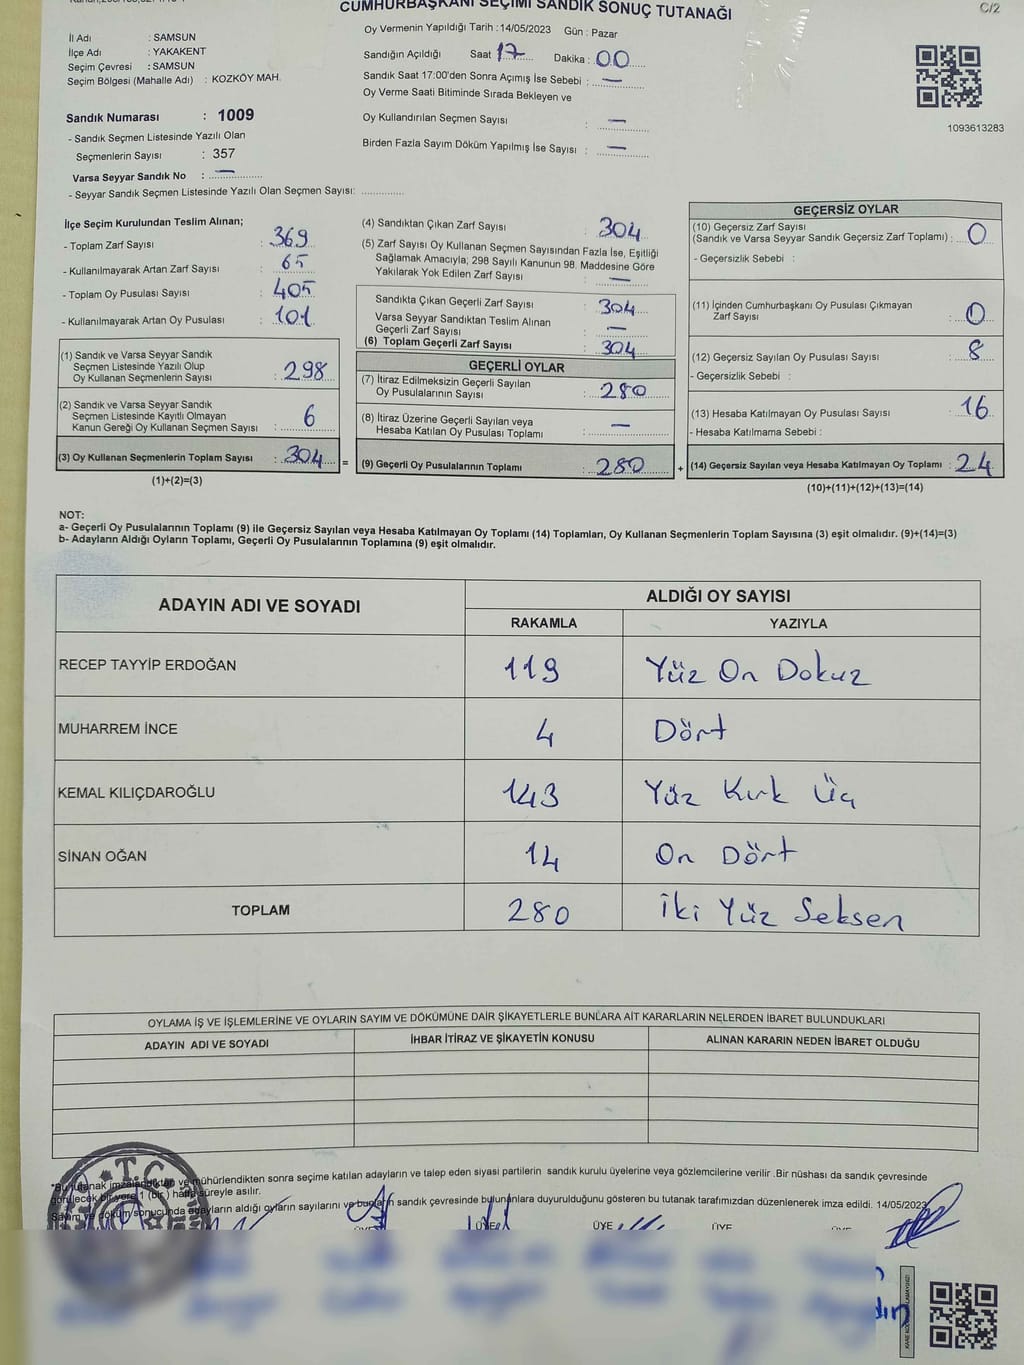 CUMHURBAŞKANI SEÇİMİ SANDIK SONUÇ TUTANAĞI
C/2
İl Adı : SAMSUN
İlçe Adı : YAKAKENT
Seçim Çevresi : SAMSUN
Seçim Bölgesi (Mahalle Adı) : KOZKÖY MAH.
Sandık Numarası : 1009
- Sandık Seçmen Listesinde Yazılı Olan
Seçmenlerin Sayısı : 357
Varsa Seyyar Sandık No : —
- Seyyar Sandık Seçmen Listesinde Yazılı Olan Seçmen Sayısı: ............
Oy Vermenin Yapıldığı Tarih : 14/05/2023 Gün : Pazar
Sandığın Açıldığı Saat 17 Dakika : 00
Sandık Saat 17:00'den Sonra Açımış İse Sebebi : —
Oy Verme Saati Bitiminde Sırada Bekleyen ve
Oy Kullandırılan Seçmen Sayısı : —
Birden Fazla Sayım Döküm Yapılmış İse Sayısı : —
1093613283
İlçe Seçim Kurulundan Teslim Alınan;
- Toplam Zarf Sayısı : 369
- Kullanılmayarak Artan Zarf Sayısı : 65
- Toplam Oy Pusulası Sayısı : 405
- Kullanılmayarak Artan Oy Pusulası : 101
(1) Sandık ve Varsa Seyyar Sandık
Seçmen Listesinde Yazılı Olup
Oy Kullanan Seçmenlerin Sayısı : 298
(2) Sandık ve Varsa Seyyar Sandık
Seçmen Listesinde Kayıtlı Olmayan
Kanun Gereği Oy Kullanan Seçmen Sayısı : 6
(3) Oy Kullanan Seçmenlerin Toplam Sayısı : 304 =
(1)+(2)=(3)
(4) Sandıktan Çıkan Zarf Sayısı : 304
(5) Zarf Sayısı Oy Kullanan Seçmen Sayısından Fazla İse, Eşitliği
Sağlamak Amacıyla; 298 Sayılı Kanunun 98. Maddesine Göre
Yakılarak Yok Edilen Zarf Sayısı : —
Sandıkta Çıkan Geçerli Zarf Sayısı : 304
Varsa Seyyar Sandıktan Teslim Alınan
Geçerli Zarf Sayısı : —
(6) Toplam Geçerli Zarf Sayısı : 304
GEÇERLİ OYLAR
(7) İtiraz Edilmeksizin Geçerli Sayılan
Oy Pusulalarının Sayısı : 280
(8) İtiraz Üzerine Geçerli Sayılan veya
Hesaba Katılan Oy Pusulası Toplamı : —
(9) Geçerli Oy Pusulalarının Toplamı : 280 +
GEÇERSİZ OYLAR
(10) Geçersiz Zarf Sayısı
(Sandık ve Varsa Seyyar Sandık Geçersiz Zarf Toplamı) : 0
- Geçersizlik Sebebi :
(11) İçinden Cumhurbaşkanı Oy Pusulası Çıkmayan
Zarf Sayısı : 0
(12) Geçersiz Sayılan Oy Pusulası Sayısı : 8
- Geçersizlik Sebebi :
(13) Hesaba Katılmayan Oy Pusulası Sayısı : 16
- Hesaba Katılmama Sebebi :
(14) Geçersiz Sayılan veya Hesaba Katılmayan Oy Toplamı : 24
(10)+(11)+(12)+(13)=(14)
NOT:
a- Geçerli Oy Pusulalarının Toplamı (9) ile Geçersiz Sayılan veya Hesaba Katılmayan Oy Toplamı (14) Toplamları, Oy Kullanan Seçmenlerin Toplam Sayısına (3) eşit olmalıdır. (9)+(14)=(3)
b- Adayların Aldığı Oyların Toplamı, Geçerli Oy Pusulalarının Toplamına (9) eşit olmalıdır.
ADAYIN ADI VE SOYADI ALDIĞI OY SAYISI
RAKAMLA YAZIYLA
RECEP TAYYİP ERDOĞAN 119 Yüz On Dokuz
MUHARREM İNCE 4 Dört
KEMAL KILIÇDAROĞLU 143 Yüz Kırk Üç
SİNAN OĞAN 14 On Dört
TOPLAM 280 İki Yüz Seksen
OYLAMA İŞ VE İŞLEMLERİNE VE OYLARIN SAYIM VE DÖKÜMÜNE DAİR ŞİKAYETLERLE BUNLARA AİT KARARLARIN NELERDEN İBARET BULUNDUKLARI
ADAYIN ADI VE SOYADI İHBAR İTİRAZ VE ŞİKAYETİN KONUSU ALINAN KARARIN NEDEN İBARET OLDUĞU
T.C.
*Bu tutanak imzalandıktan ve mühürlendikten sonra seçime katılan adayların ve talep eden siyasi partilerin sandık kurulu üyelerine veya gözlemcilerine verilir. Bir nüshası da sandık çevresinde
görülecek bir yere 1 (bir) hafta süreyle asılır.
Sayım ve döküm sonucunda adayların aldığı oyların sayılarını ve bunların sandık çevresinde bulunanlara duyurulduğunu gösteren bu tutanak tarafımızdan düzenlenerek imza edildi. 14/05/2023
ÜYE ÜYE ÜYE ÜYE